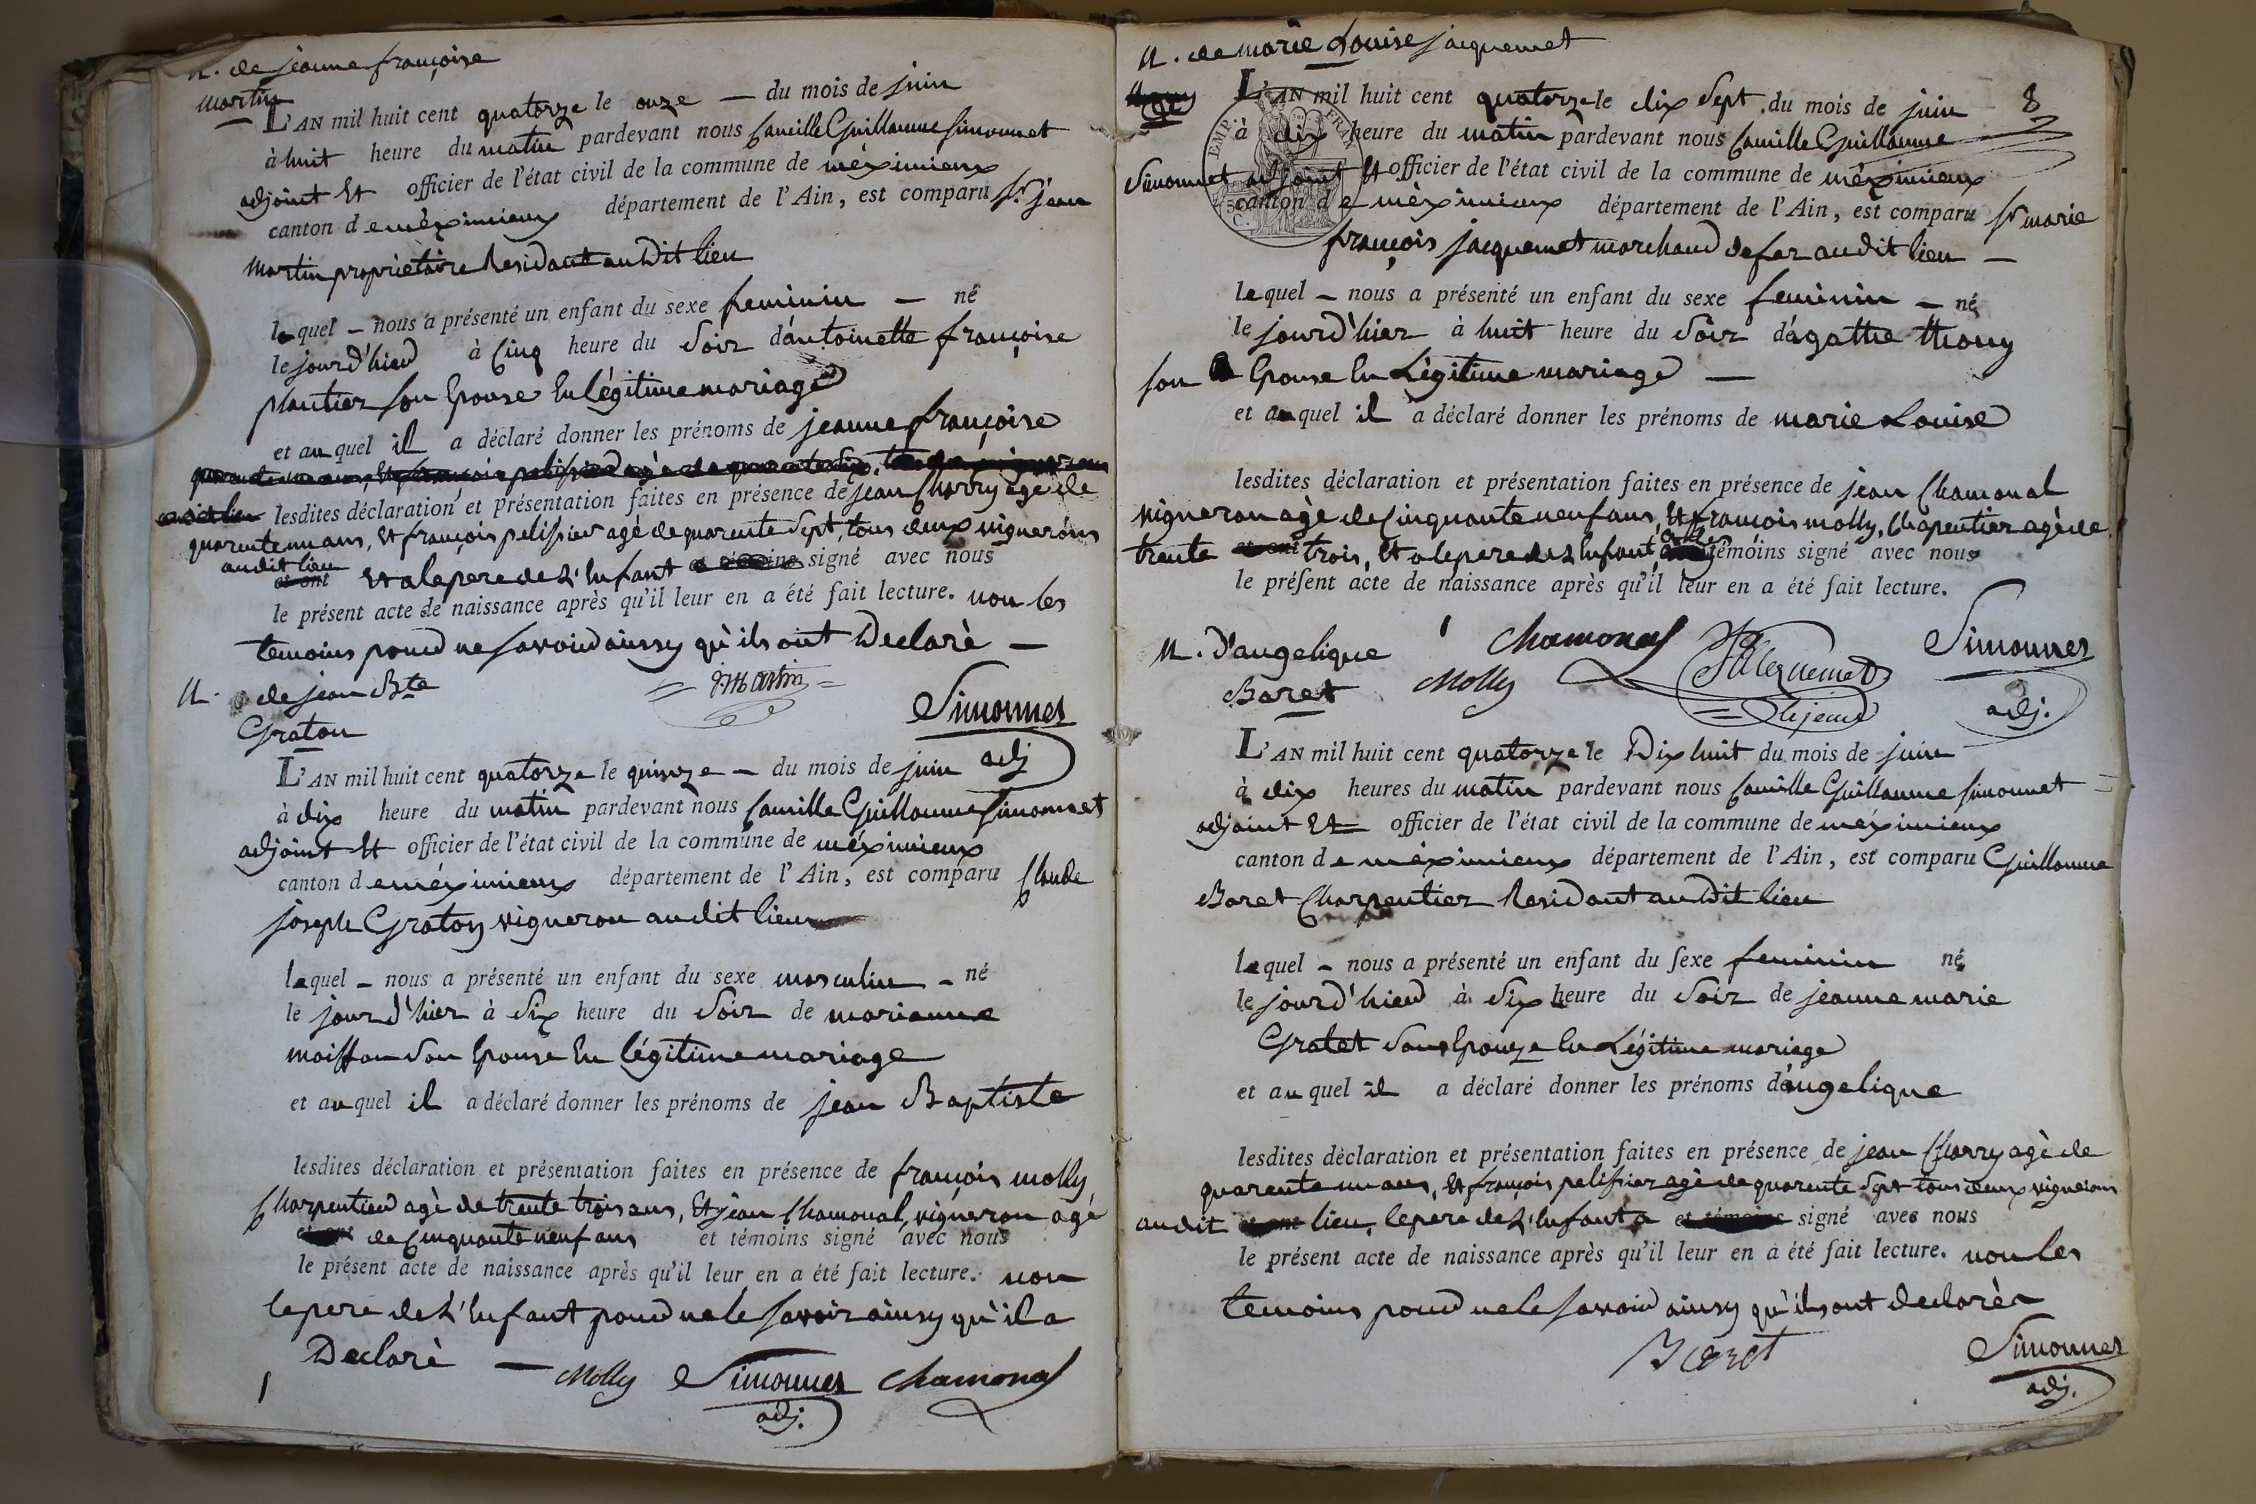 N. de jeanne françoise
martin
L'AN mil huit cent quatorze le onze — du mois de juin
à huit heure du matin pardevant nous Camille Guillaume Simonnet
adjoint Et officier de l'état civil de la commune de méximieux
canton de méximieux département de l'Ain, est comparu Sr jean
Martin propriètaire Residant audit lieu
lequel — nous a présenté un enfant du sexe feminin — né
le jourd'hied à Cinq heure du Soir d'antoinette françoise
plantier Son Epouse En légitime mariage
et auquel il a déclaré donner les prénoms de jeanne françoise
lesdites déclaration et présentation faites en présence de jean Charry agé de
quarente un ans, Et françois pelissier agé de quarente Sept, tous deux vignerons
audit lieu
Et a le pere de L'Enfant signé avec nous
le présent acte de naissance après qu'il leur en a été fait lecture. non les
temoins poud ne Savoid ainsy qu'ils ont Declarè —
J. Martin
Simonnet
adj
N. de jean Bte
Graton
L'AN mil huit cent quatorze le quinze — du mois de juin
à dix heure du matin pardevant nous Camille Guillaume Simonnet
adjoint Et officier de l'état civil de la commune de méximieux
canton de méximieux département de l'Ain, est comparu Claude
joseph Graton vigneron audit lieu
lequel — nous a présenté un enfant du sexe masculin — né
le jourd'hier à Six heure du Soir de marianne
moisson Son Epouse En légitime mariage
et auquel il a déclaré donner les prénoms de jean Baptiste
lesdites déclaration et présentation faites en présence de françois molly
Charpentied agè de trente trois ans, Et jean Chamonal, vigneron agé
de Cinquante neuf ans et témoins signé avec nous
le présent acte de naissance après qu'il leur en a été fait lecture. non
le pere de L'Enfant poud ne le Savoir ainsy qu'il a
Declarè —
Molly Simonnet Chamonal
adj.
N. de marie Louise jacquemet
8
L'AN mil huit cent quatorze le dix Sept du mois de juin
à dix heure du matin pardevant nous Camille Guillaume
Simonnet adjoint Et officier de l'état civil de la commune de méximieux
canton de mèximieux département de l'Ain, est comparu Sr marie
françois jacquemet marchand de fer audit lieu —
EMP. FRAN.
lequel — nous a présenté un enfant du sexe feminin — né
le jourd'hier à huit heure du Soir d'agathe thony
Son Epouse En Légitime mariage —
et auquel il a déclaré donner les prénoms de marie Louise
lesdites déclaration et présentation faites en présence de jean Chamonal
vigneron agè de Cinquante neuf ans, Et françois molly, Charpentier agè de
trente trois, Et a le pere de L'Enfant témoins signé avec nous
le présent acte de naissance après qu'il leur en a été fait lecture.
Chamonal Jacquemet Simonnet
Molly le jeune adj.
N. D'angelique
Baret
L'AN mil huit cent quatorze le Dix huit du mois de juin
à dix heures du matin pardevant nous Camille Guillaume Simonnet
adjoint Et officier de l'état civil de la commune de méximieux
canton de méximieux département de l'Ain, est comparu Guillaume
Baret Charpentier Residant audit lieu
lequel — nous a présenté un enfant du sexe feminin né
le jourd'hied à Six heure du Soir de jeanne marie
Gratet Son Epouze En Légitime mariage
et auquel il a déclaré donner les prénoms d'angelique
lesdites déclaration et présentation faites en présence de jean Charry agè de
quarente un ans, Et françois pelissier agè de quarente Sept tous deux vignerons
audit lieu, le pere de L'Enfant a signé avec nous
le présent acte de naissance après qu'il leur en a été fait lecture. non les
temoins poud ne le Savoid ainsy qu'ils ont declarè
Baret Simonnet
adj.